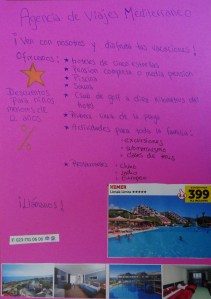 Agencia de Viajes Mediterráneo
¡Ven con nosotros y disfruta tus vacaciones!
Ofrecemos:
• Hoteles de cinco estrellas
• Pensión completa o media pensión
• Piscina
• Sauna
• Club de golf a diez minutos del hotel
• cerca de la playa
• Actividades para toda la familia:
- excursiones
- submarinismo
- clases de
• Restaurantes:
- chino
- indio
- europeo
Descuentos para niños menores de 12 años
%
¡Llámanos!
KEMER
399